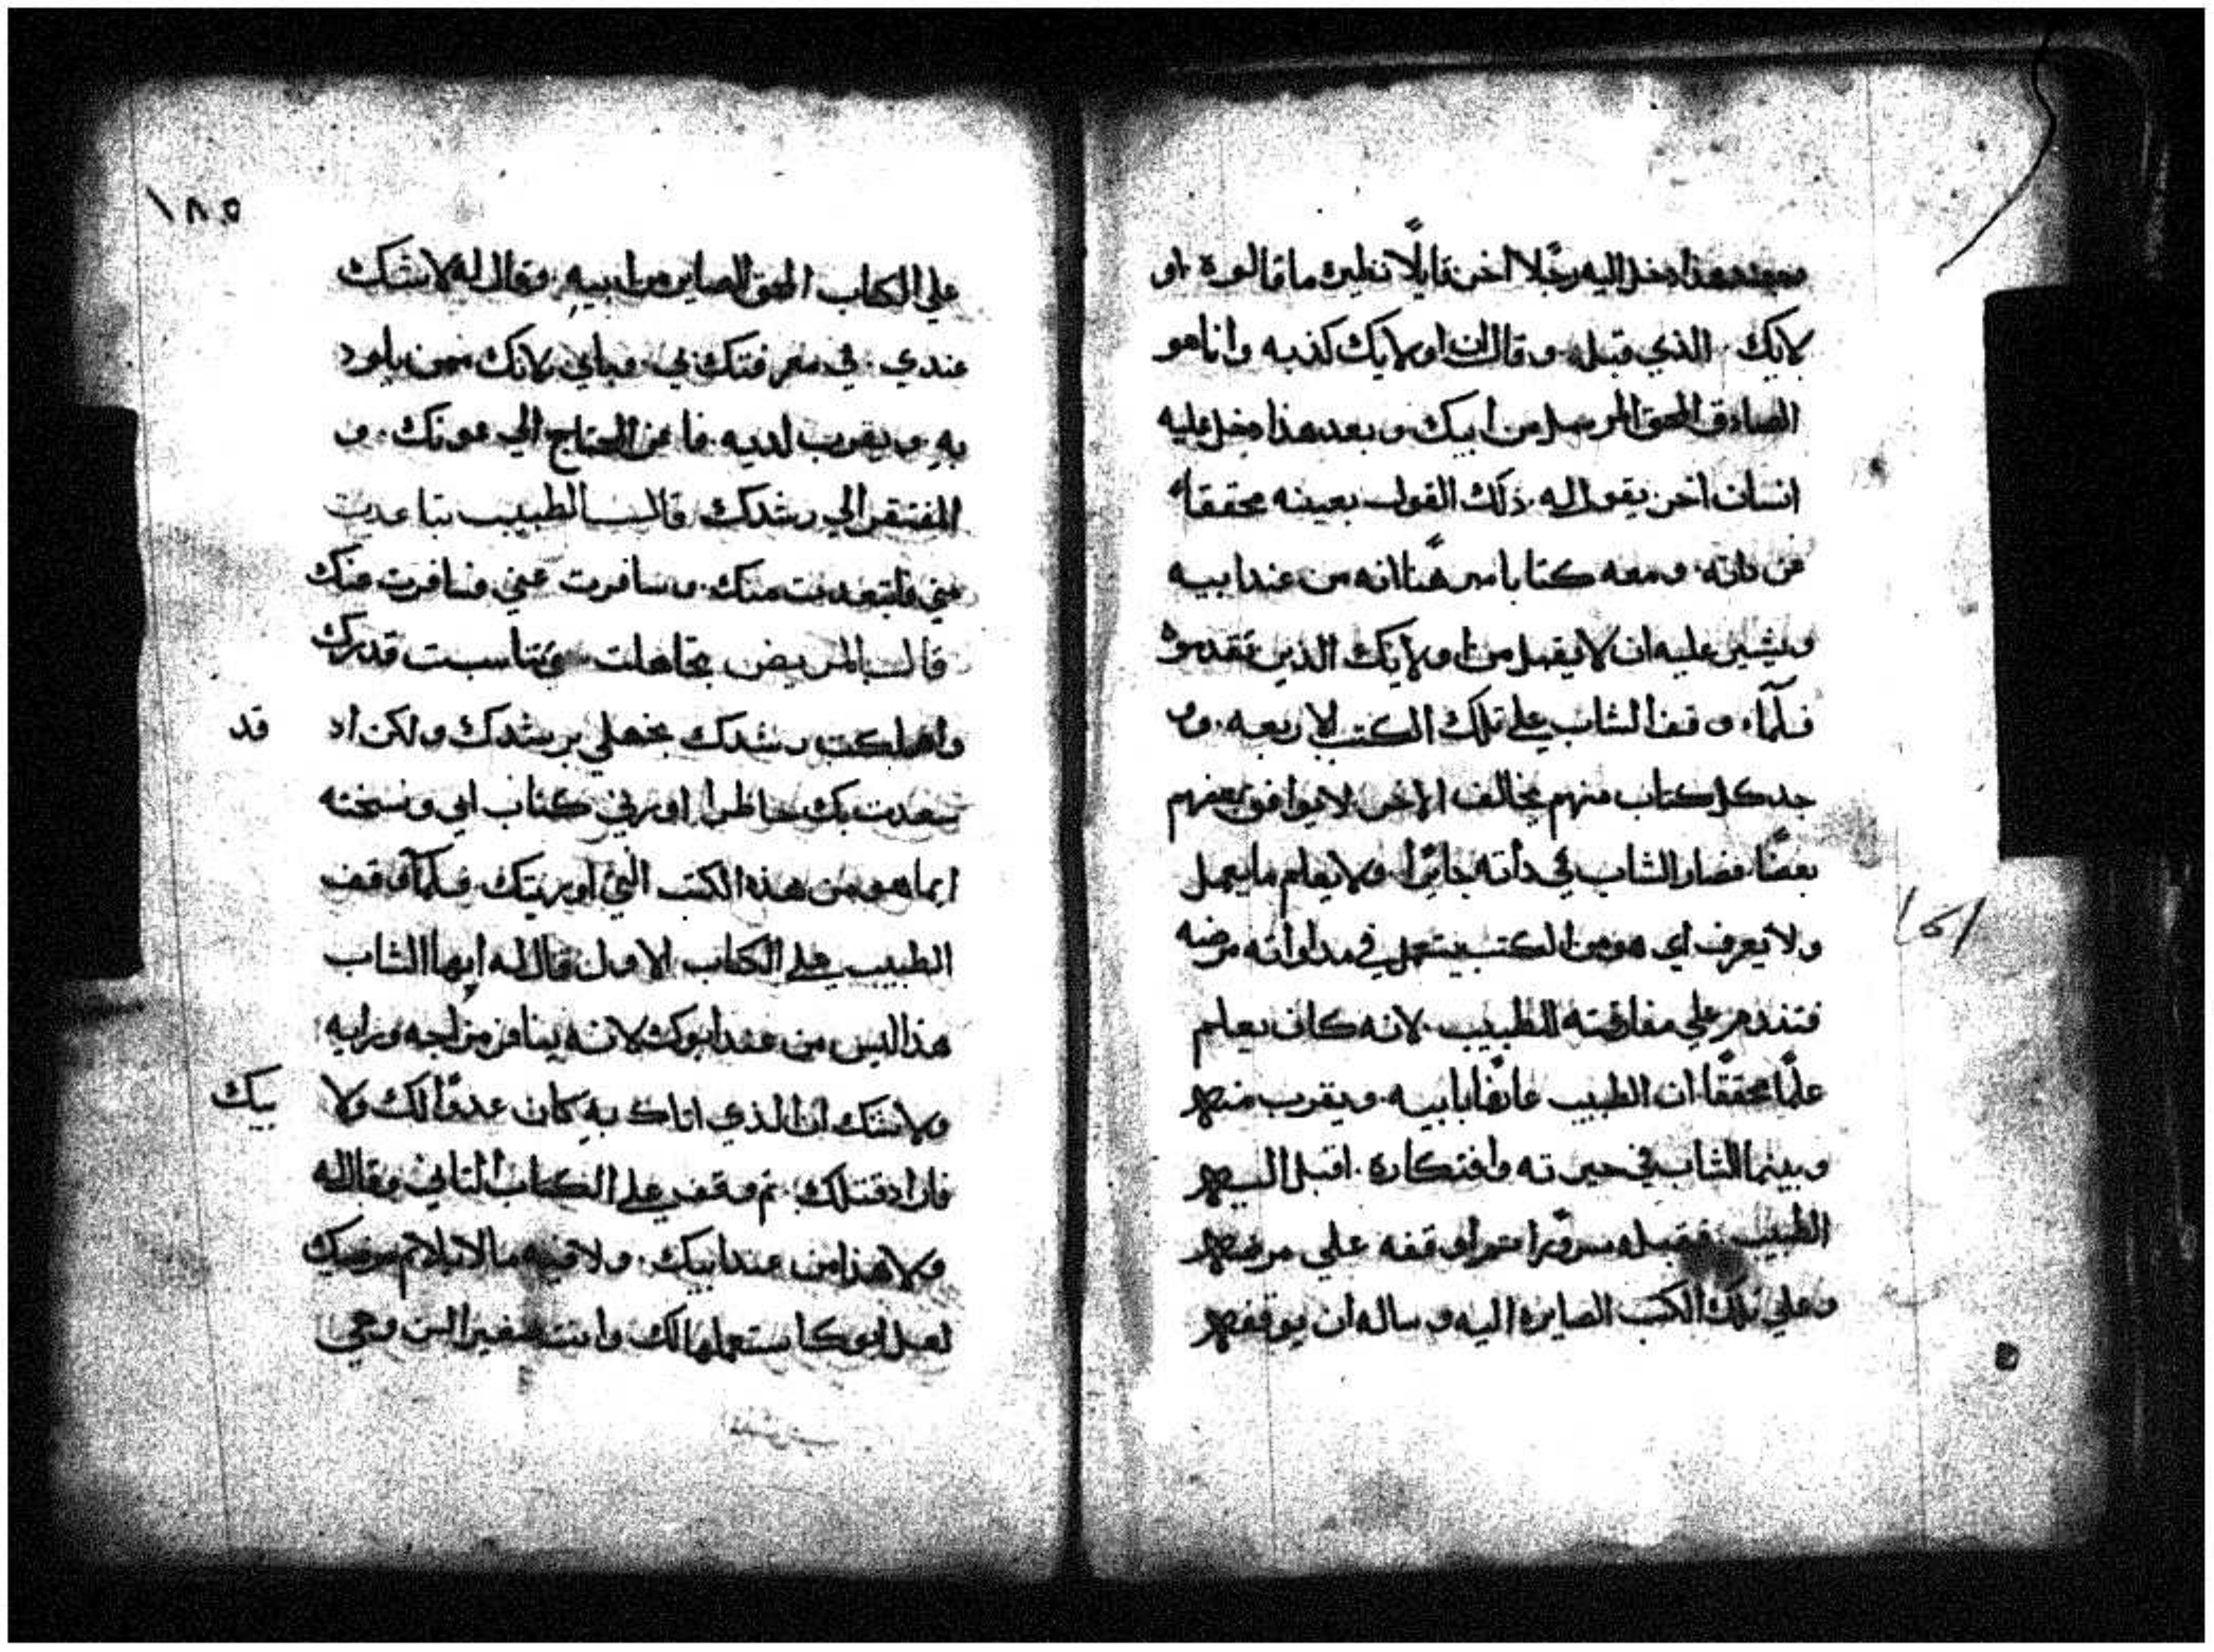 وبعد هذا دخل اليه رجلا اخر قايلا نظير ما قالوه او
لايك الذي قبله وقال ان اولايك كذبه وانا هو
الصادق المحق المرسل من ابيك وبعد هذا دخل عليه
انسان اخر يقول له ذلك القول بعينه محققا
عن داته ومعه كتابا مبرهنا انه من عند ابيه
ويشير عليه ان لا يقبل من اولايك الذين تقدموه
فلما وقف الشاب علي تلك الكتب الاربعه وو
جد كل كتاب منهم يخالف الاخر لا يوافق بعضهم
بعضا فصار الشاب في داته حايرا ولا يعلم ما يعمل
ولا يعرف اي هو من الكتب يستعمل في مداواته مرضه
فتندم علي مفارقته للطبيب لانه كان يعلم
علما محققا ان الطبيب عارفا بابيه ويقرب منهم
وبينما الشاب في حيرته وافتكاره اقبل اليهم
الطبيب فقبله مسرورا واوقفه علي مرضهم
وعلي تلك الكتب الصايره اليه وساله ان يوقفهم
١٨٥
علي الكتاب المحق الصاير من ابيه وقال له لا شك
عندي في معرفتك بي وبابي لانك ممن يلود
به ويقرب لديه فاعن المحتاج الي عونك و
المفتقر الي رشدك قال الطبيب تباعدت
عني فابتعدت منك وسافرت عني فسافرت عنك
قال المريض تجاهلت وتناسيت قدرك
واهملت رشدك بجهلي برشدك ولكن اد قد
سعدت بك حاظرا اورني كتاب ابي ونسخته
ايما هو من هذه الكتب التي اوريتك فلما وقف
الطبيب علي الكتاب الاول قال له ايها الشاب
هذا ليس من عند ابوك لانه ينافر مزاجه ورايه
ولا شك ان الذي اتاك به كان عدوا لك ولابيك
فاراد قتلك ثم وقف علي الكتاب التاني وقال له
ولا هذا من عند ابيك ولا فيه ما لا يلايم مرضك
لعل ابوك استعملها لك وانت صغير السن وهي